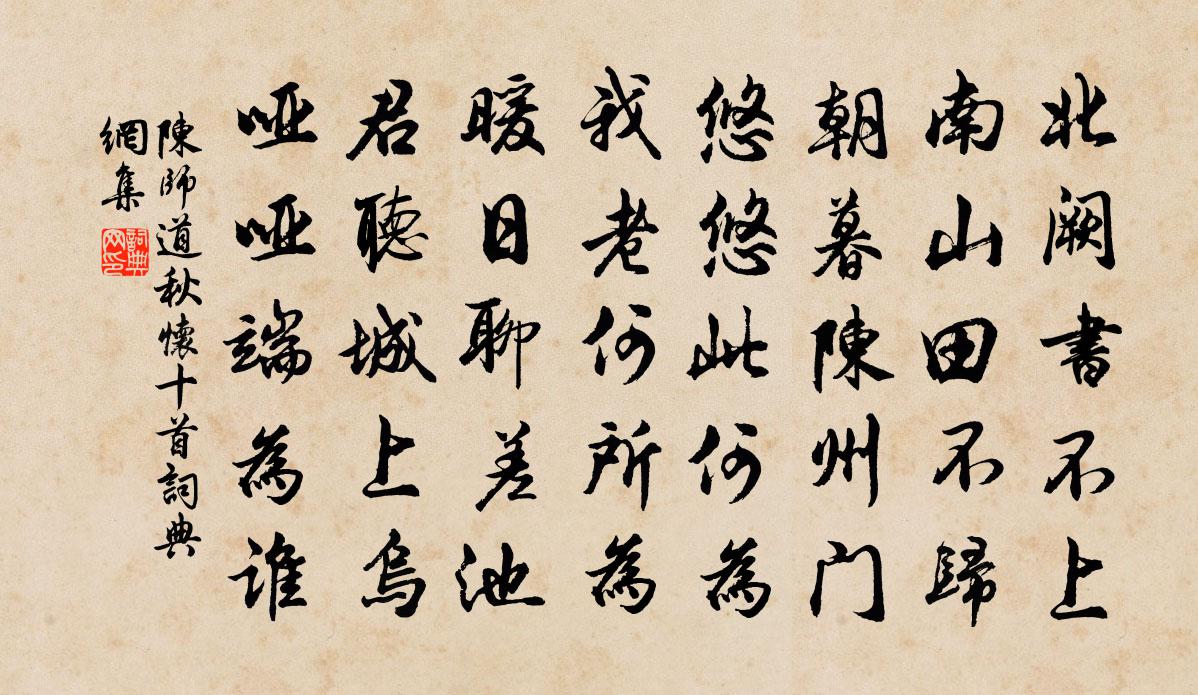 北阙書不上
南山田不歸
朝暮陳州门
悠悠此何為
我老何所為
暖日聊差池
君聽城上烏
哑哑端為谁
陳師道秋懷十首詞典
網集
詞典
网印